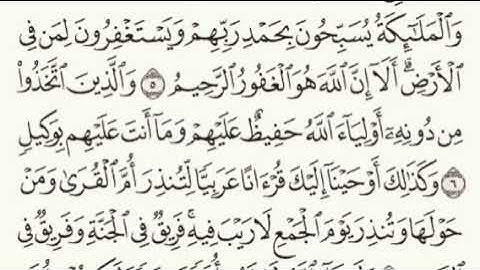 وَٱلْمَلَٰٓئِكَةُ يُسَبِّحُونَ بِحَمْدِ رَبِّهِمْ وَيَسْتَغْفِرُونَ لِمَن فِي
ٱلْأَرْضِ ۗ أَلَآ إِنَّ ٱللَّهَ هُوَ ٱلْغَفُورُ ٱلرَّحِيمُ ٥ وَٱلَّذِينَ ٱتَّخَذُوا۟
مِن دُونِهِۦٓ أَوْلِيَآءَ ٱللَّهُ حَفِيظٌ عَلَيْهِمْ وَمَآ أَنتَ عَلَيْهِم بِوَكِيلٍ
٦ وَكَذَٰلِكَ أَوْحَيْنَآ إِلَيْكَ قُرْءَانًا عَرَبِيًّا لِّتُنذِرَ أُمَّ ٱلْقُرَىٰ وَمَنْ
حَوْلَهَا وَتُنذِرَ يَوْمَ ٱلْجَمْعِ لَا رَيْبَ فِيهِ ۚ فَرِيقٌ فِي ٱلْجَنَّةِ وَفَرِيقٌ فِي